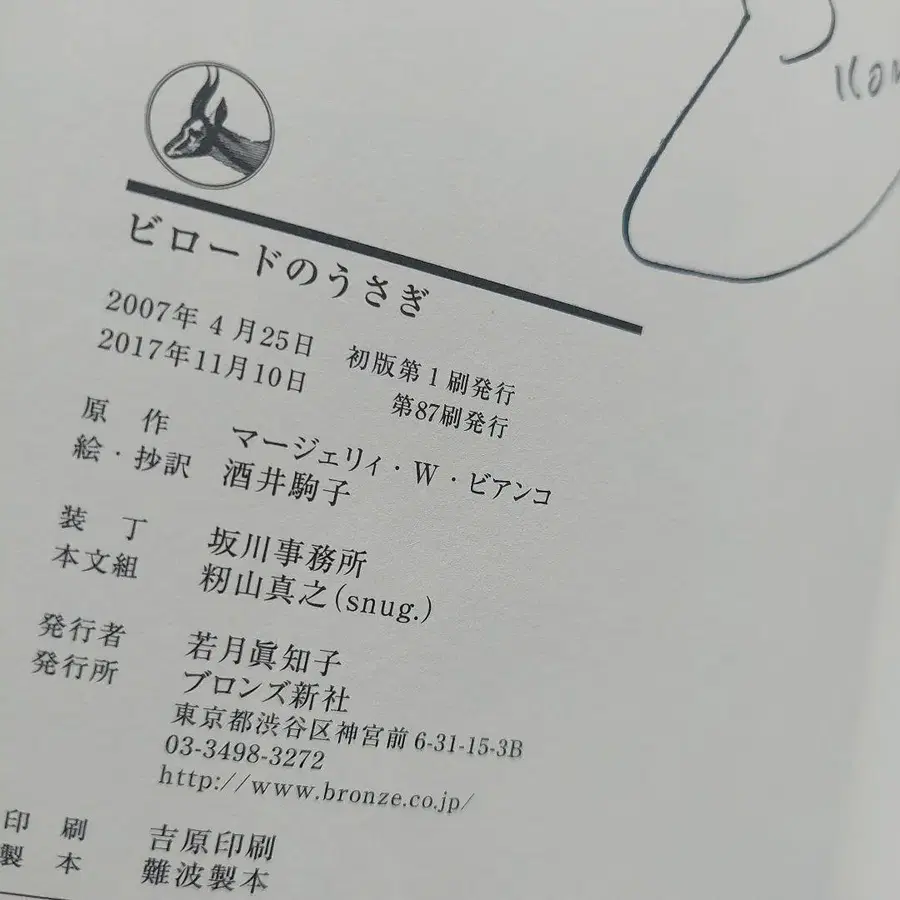 ビロードのうさぎ
2007年 4月25日 初版第1刷発行
2017年11月10日 第87刷発行
原 作 マージェリィ・W・ビアンコ
絵・抄訳 酒井駒子
装 丁 坂川事務所
本文組 籾山真之(snug.)
発行者 若月眞知子
発行所 ブロンズ新社
東京都渋谷区神宮前6-31-15-3B
03-3498-3272
http://www.bronze.co.jp/
印 刷 吉原印刷
製 本 難波製本